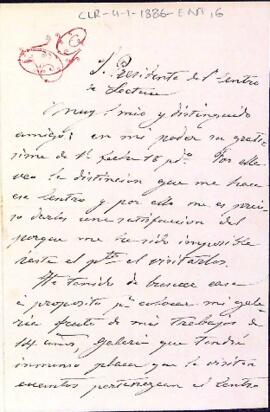 CLR-4-1-1886-ENT, 6
S. Presidente del Centro
de Lectura
Muy Sr mio y distinguido
amigo; en mi poder su gratí
sima de 1ª fecha 15 pdo. Por ella
veo la distincion que me hace
ese Centro y por ello me es preci
so darles una satisfaccion del
porque me ha sido imposible
hasta el pte el visitarlos.
He tenido de buscar casa
á proposito pª colocar mi gale
ria fruto de mis trabajos de
14 años, Galeria que tendré
inmenso placer que la visiten
cuantos pertenezcan al Centro